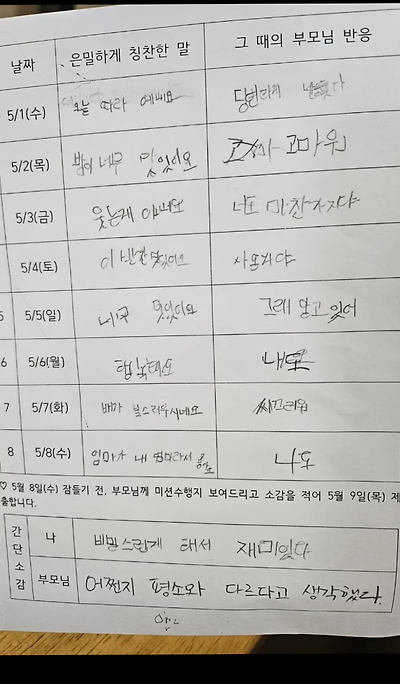 날짜 은밀하게 칭찬한 말 그 때의 부모님 반응
5/1(수) 오늘 따라 예뻐요
5/2(목) 밥이 너무 맛있어요 고마워
5/3(금) 웃는게 이뻐요 너도 마찬가지야
5/4(토) 이 반찬 맛있어요 사온거야
5 5/5(일) 너무 맛있어요 그래 알고 있어
6 5/6(월) 행복해요 나도
7 5/7(화) 배가 부스러우시네요 씨끄러워
8 5/8(수) 엄마가 내 엄마라서 나도
♡ 5월 8일(수) 잠들기 전, 부모님께 미션수행지 보여드리고 소감을 적어 5월 9일(목) 제
출합니다.
간단소감
나 비밀스런게 해서 재미있다
부모님 어쩐지 평소와 다르다고 생각했다.